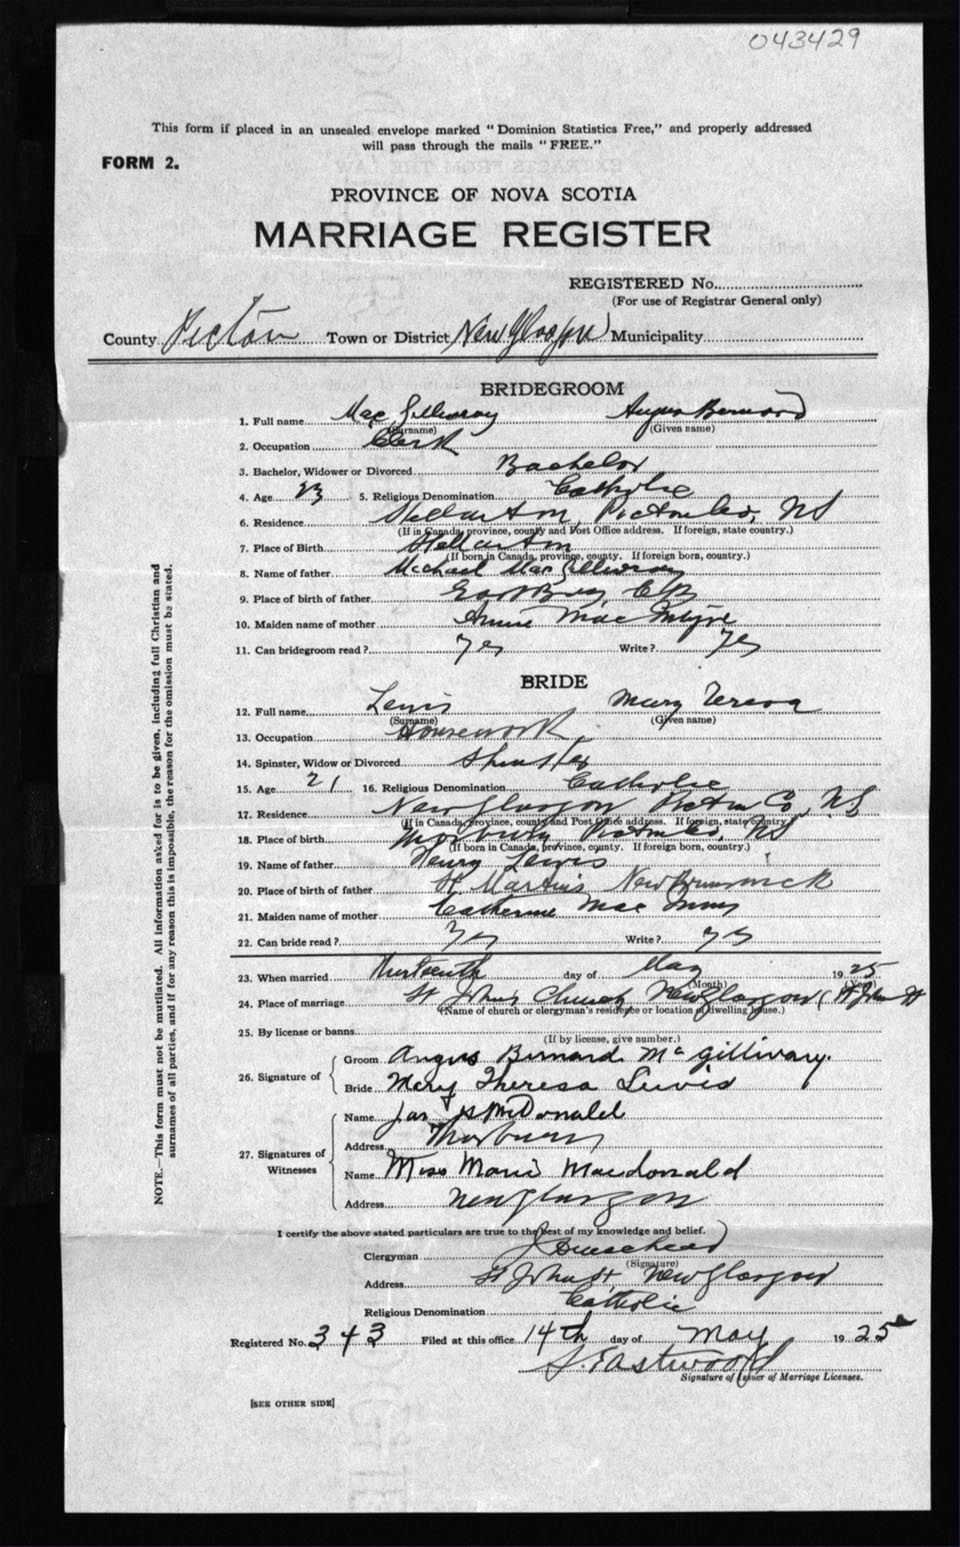 043429
This form if placed in an unsealed envelope marked "Dominion Statistics Free," and properly addressed
will pass through the mails "FREE."
FORM 2.
PROVINCE OF NOVA SCOTIA
MARRIAGE REGISTER
REGISTERED No.
(For use of Registrar General only)
County Pictou Town or District New Glasgow Municipality
BRIDEGROOM
1. Full name Mac Gillivray Angus Bernard
(Surname) (Given name)
2. Occupation Clerk
3. Bachelor, Widower or Divorced Bachelor
4. Age 23 5. Religious Denomination Catholic
6. Residence Stellarton, Pictou Co, NS
(If in Canada, province, county and Post Office address. If foreign, state country.)
7. Place of Birth Stellarton
(If born in Canada, province, county. If foreign born, country.)
8. Name of father Michael Mac Gillivray
9. Place of birth of father East Bay, CB
10. Maiden name of mother Annie Mac Intyre
11. Can bridegroom read? yes Write? yes
BRIDE
12. Full name Lewis Mary Teresa
(Surname) (Given name)
13. Occupation Housework
14. Spinster, Widow or Divorced Spinster
15. Age 21 16. Religious Denomination Catholic
17. Residence New Glasgow Pictou Co, NS
(If in Canada, province, county and Post Office address. If foreign, state country.)
18. Place of birth Thorburn Pictou Co, NS
(If born in Canada, province, county. If foreign born, country.)
19. Name of father Henry Lewis
20. Place of birth of father St Martins New Brunswick
21. Maiden name of mother Catherine Mac
22. Can bride read? yes Write? yes
23. When married Thirteenth day of May 1925
(Month) (Year)
24. Place of marriage St John's Church New Glasgow (St John St
(Name of church or clergyman's residence or location of dwelling house.)
25. By license or banns
(If by license, give number.)
26. Signature of Groom Angus Bernard McGillivary.
Bride Mary Theresa Lewis
27. Signatures of Witnesses Name Jas McDonald
Address Thorburn
Name Miss Marie Macdonald
Address New Glasgow
I certify the above stated particulars are true to the best of my knowledge and belief.
Clergyman
(Signature)
Address St John St, New Glasgow
Religious Denomination Catholic
Registered No. 343 Filed at this office 14th day of May 1925
S. Eastwood
Signature of Issuer of Marriage Licenses.
[SEE OTHER SIDE]
NOTE.—This form must not be mutilated. All information asked for is to be given, including full Christian and
surnames of all parties, and if for any reason this is impossible, the reason for the omission must be stated.